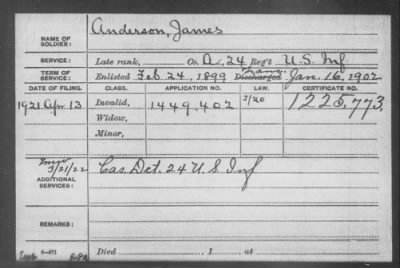 NAME OF SOLDIER: Anderson, James
SERVICE: Late rank, Co. A, 24 Reg't U.S. Inf
TERM OF SERVICE: Enlisted Feb. 24, 1899 Discharged Jan. 16, 1902
DATE OF FILING. CLASS. APPLICATION NO. LAW. CERTIFICATE NO.
1921 Apr 13 Invalid, 1449,402 1225,773
Widow,
Minor,
3/21/22 Cas. Det. 24 U.S. Inf
ADDITIONAL SERVICES:
REMARKS:
Died , 1 at